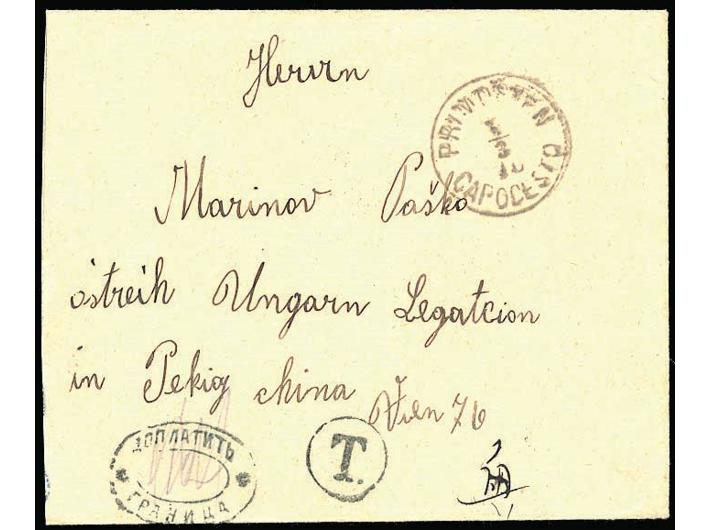 Herrn
PRIMOŠTEN
CAPOCESTO
Marinov Paško
östreih Ungarn Legatcion
in Pekig china
Vien 76
ДОПЛАТИТЬ
ГРАНИЦА
T.